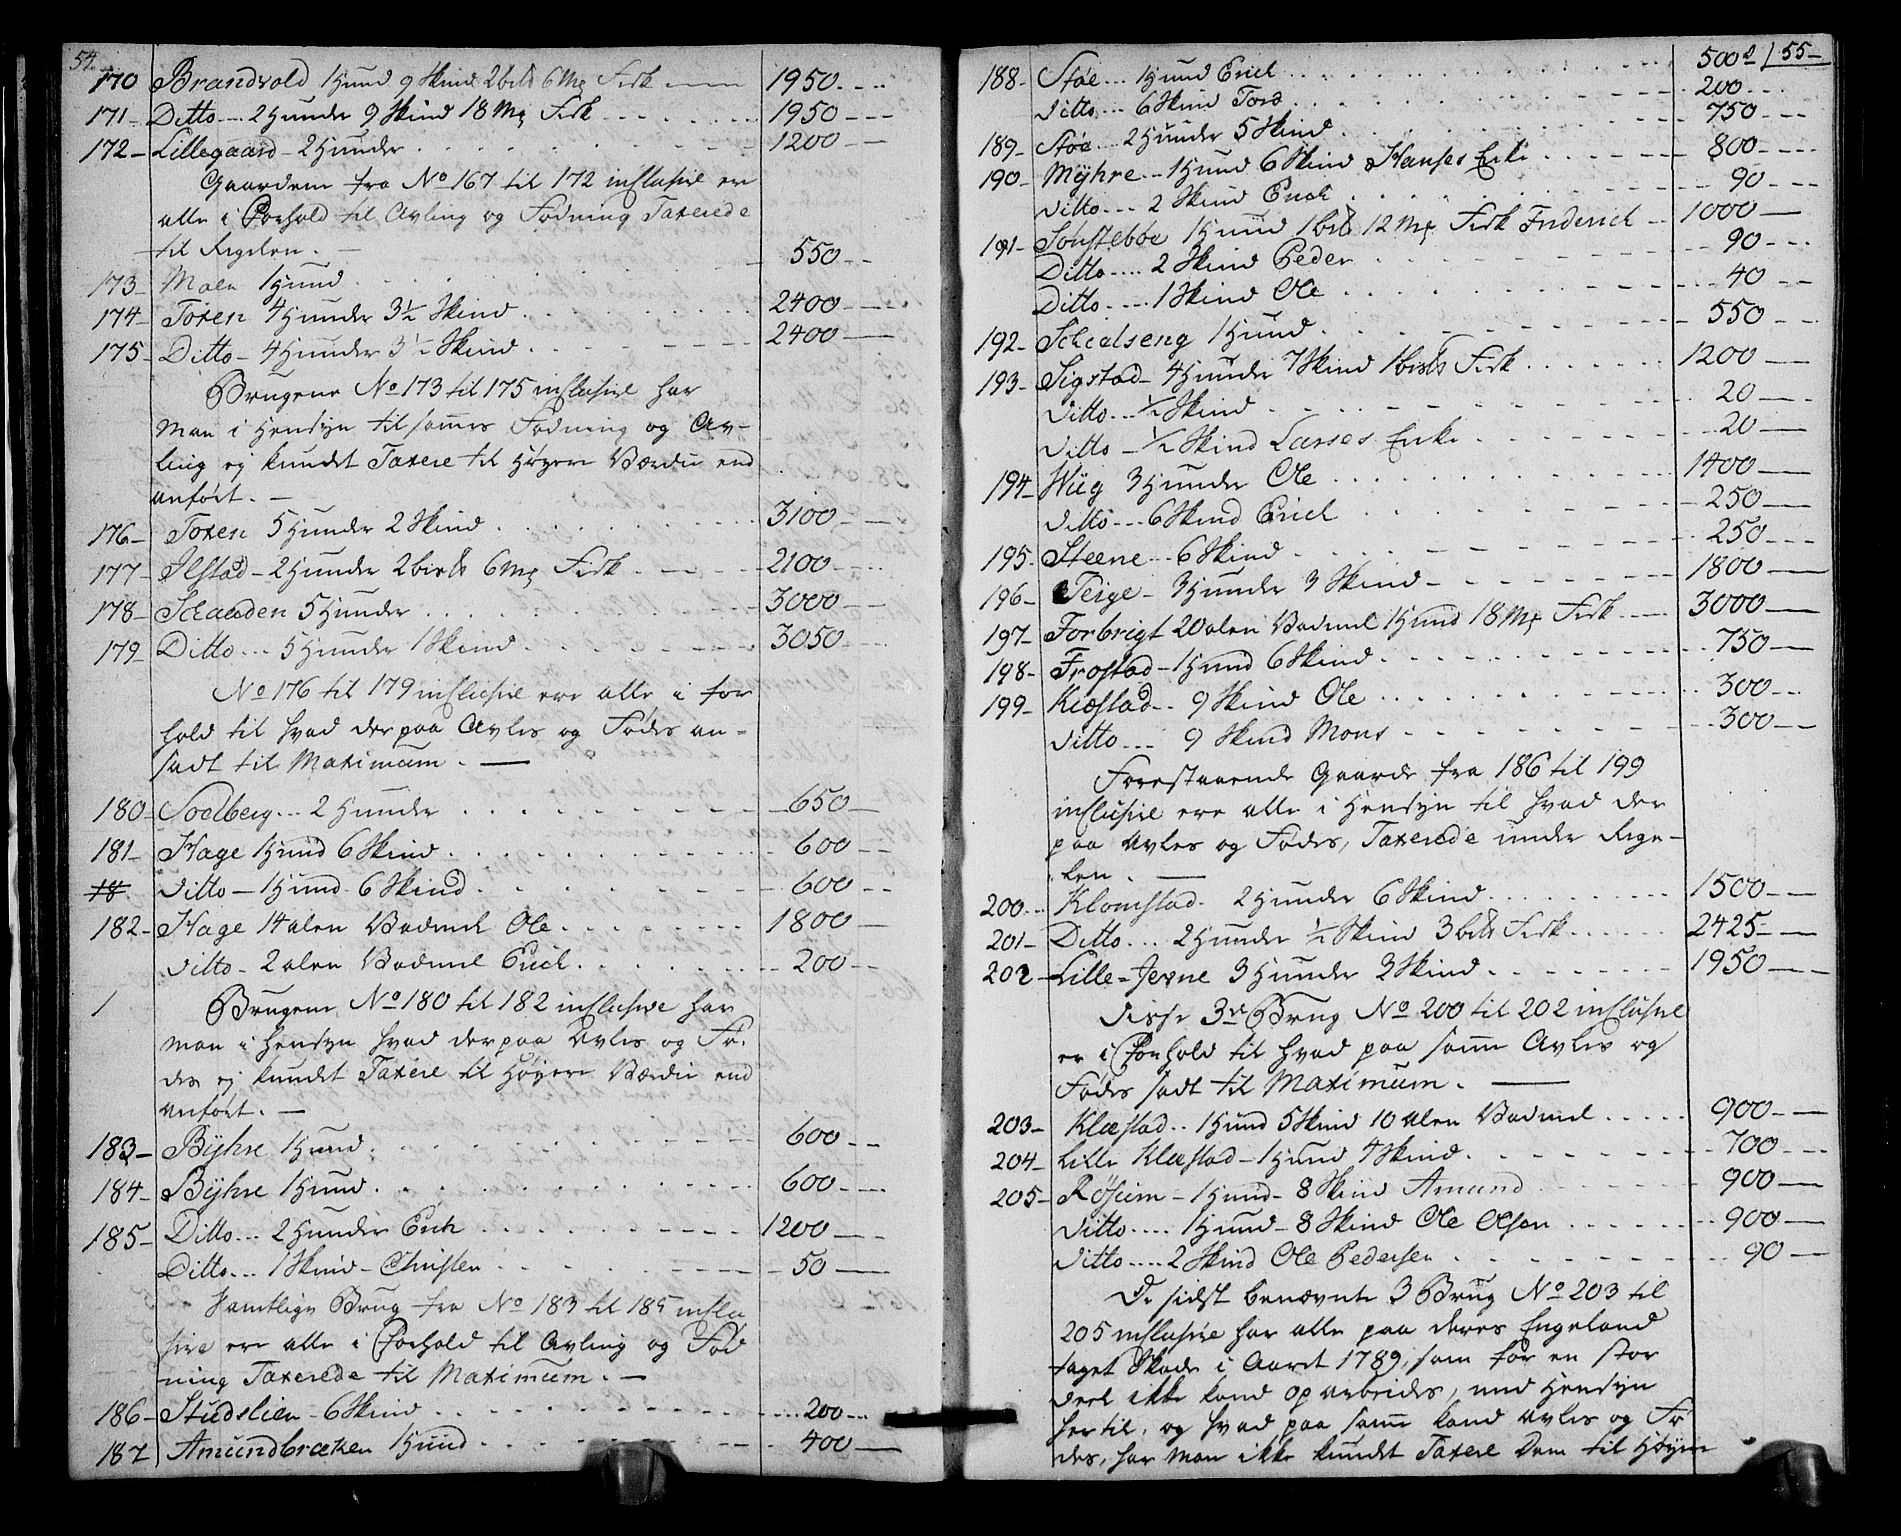 54.
170 Brandvold 1 Hund 9 Skind 2 bis℔ 6 Mk Fisk 1950
171 Ditto 2 Hunder 9 Skind 18 Mk Fisk 1950
172 Lillegaard 2 Hunder 1200
Gaardene fra No 167 til 172 inclusive er
alle i Forhold til Avling og Fødning Taxerede
til Regelen.
173 Moen 1 Hund 550
174 Toxen 4 Hunder 3½ Skind 2400
175 Ditto 4 Hunder 3½ Skind 2400
Brugene No 173 til 175 inclusive har
Man i Hensyn til sammes Fødning og Av-
ling ej kundet Taxere til Høyere Værdie end
anført.
176 Toxen 5 Hunder 2 Skind 3100
177 Ilstad 2 Hunder 2 bis℔ 6 Mk Fisk 2100
178 Schaaden 5 Hunder 3000
179 Ditto 5 Hunder 1 Skind 3050
No 176 til 179 inclusive ere alle i for
hold til hvad der paa Avles og Fødes an-
sadt til Maximum.
180 Soelberg 2 Hunder 650
181 Hage 1 Hund 6 Skind 600
18 Ditto 1 Hund 6 Skind 600
182 Hage 14 alen Vadmel Ole 1800
Ditto 2 alen Vadmel Erich 200
1 Brugene No 180 til 182 inclusive har
man i Hensyn hvad der paa Avles og Fø-
des ej kundet Taxere til Høyere Værdie end
anført.
183 Byhre 1 Hund 600
184 Byhre 1 Hund 600
185 Ditto 2 Hunder Erich 1200
Ditto 1 Skind Christen 50
Samtlige Brug fra No 183 til 185 inclu
sive ere alle i Forhold til Avling og Fød
ning Taxerede til Maximum.
186 Studslien 6 Skind 200
187 Amundbræken 1 Hund 400
55
188 Støe 1 Hund Erich 500
Ditto 6 Skind Tord 200
189 Støe 2 Hunder 5 Skind 750
190 Myhre 1 Hund 6 Skind Hanses Enke 800
Ditto 2 Skind Erich 90
191 Sønstebøe 1 Hund 1 bis℔ 12 Mk Fisk Friderich 1000
Ditto 2 Skind Peder 90
Ditto 1 Skind Ole 40
192 Schielseng 1 Hund 550
193 Sigstad 4 Hunder 7 Skind 1 bis℔ Fisk 1200
Ditto ½ Skind 20
Ditto ½ Skind Larses Enke 20
194 Wiig 3 Hunder Ole 1400
Ditto 6 Skind Erich 250
195 Steene 6 Skind 250
196 Teige 3 Hunder 3 Skind 1800
197 Forbrigt 20 alen Vadmel 1 Hund 18 Mk Fisk 3000
198 Frostad 1 Hund 6 Skind 750
199 Kiæstad 9 Skind Ole 300
Ditto 9 Skind Mons 300
Forestaaende Gaarde fra 186 til 199
inclusive ere alle i Hensyn til hvad der
paa Avles og Fødes, Taxerede under Rege-
len.
200 Klomstad 2 Hunder 6 Skind 1500
201 Ditto 2 Hunder ½ Skind 3 bis℔ Fisk 2425
202 Lille-Jevne 3 Hunder 3 Skind 1950
Disse 3de Brug No 200 til 202 inclusive
er i Forhold til hvad paa samme Avles og
Fødes sadt til Maximum.
203 Klæstad 1 Hund 5 Skind 10 alen Vadmel 900
204 Lille Klæstad 1 Hund 4 Skind 700
205 Røsum 1 Hund 8 Skind Amund 900
Ditto 1 Hund 8 Skind Ole Olsen 900
Ditto 2 Skind Ole Pedersen 90
De sidst benævnte 3 Brug No 203 til
205 inclusive har alle paa deres Engeland
taget Skade i Aaret 1789, som for en stor
Deel ikke kand oparbeides, med Hensyn
hertil, og hvad paa samme kand Avles og Fø
des, har Man ikke kundet Taxere Dem til Høyere